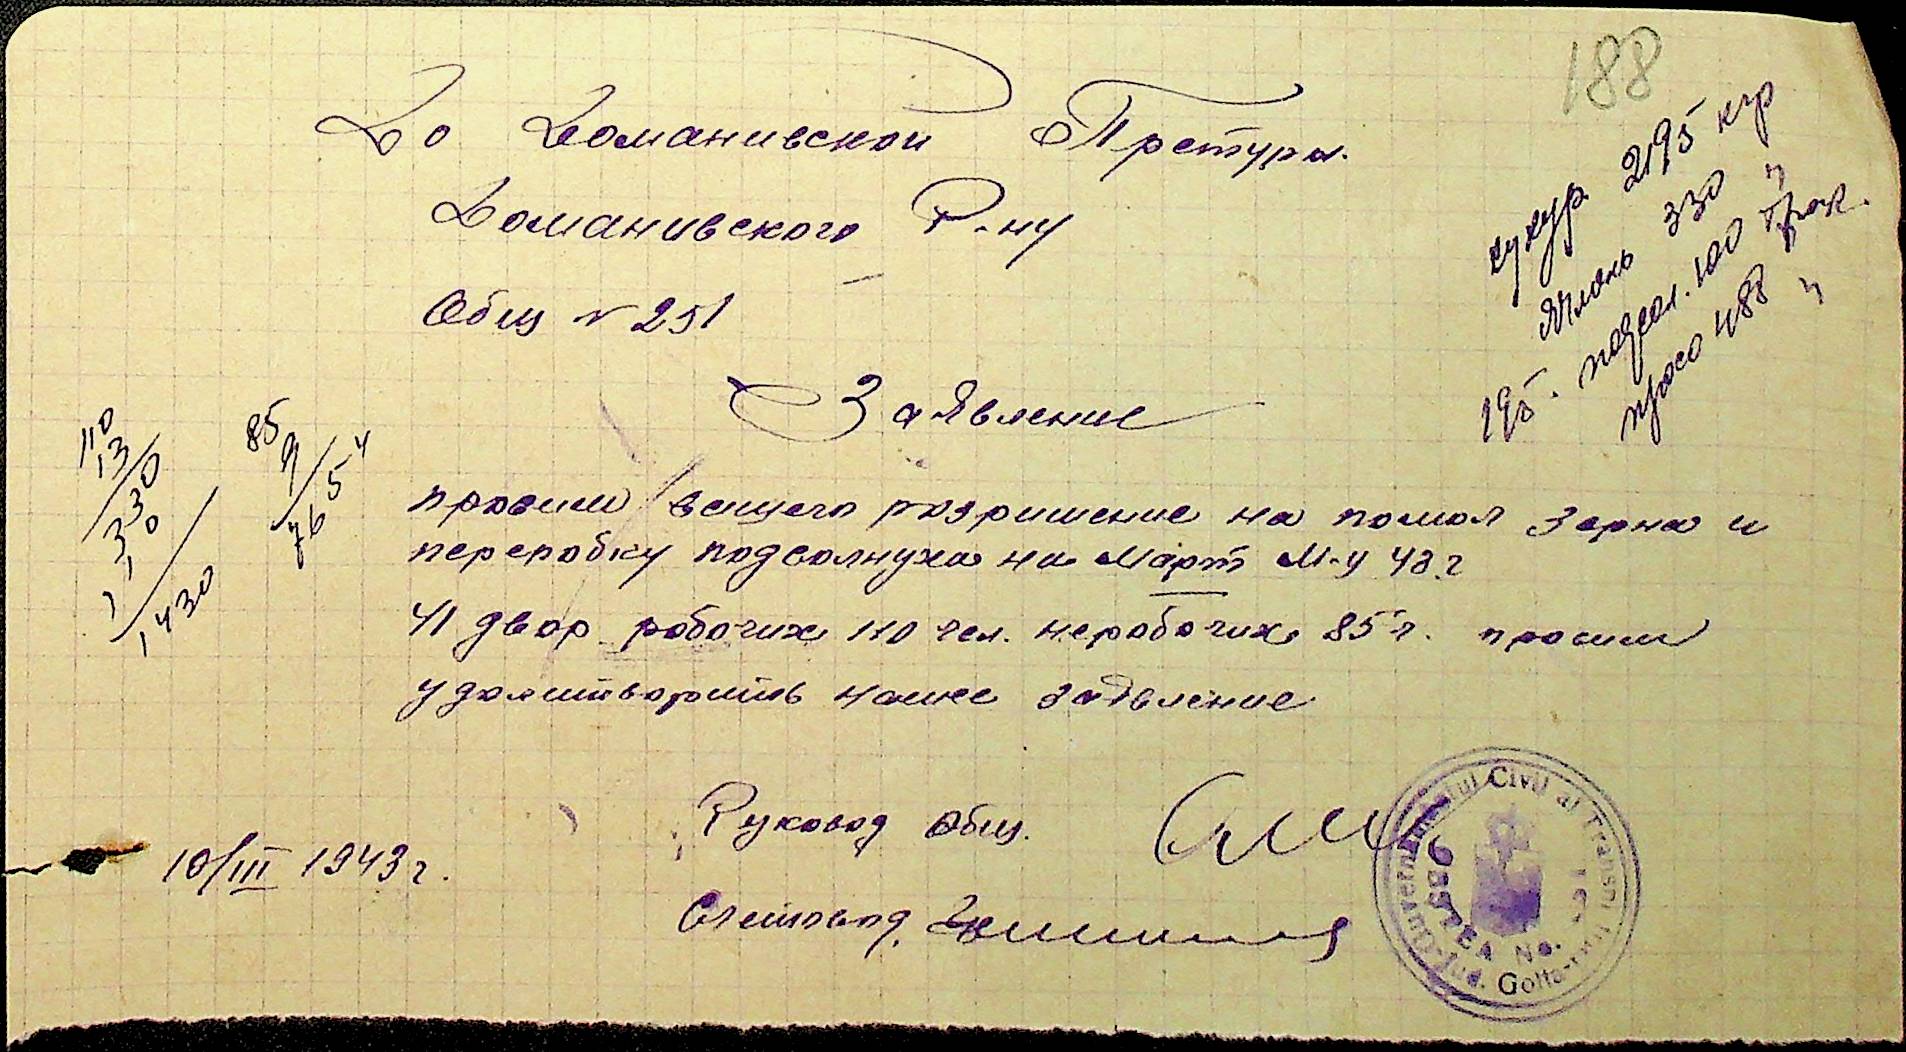 188
До Доманивской Претуры.
Доманивского Р-ну
Общ № 251
кукур. 2195 кгр
Ячмень 330 "
195. подсол. 100 
просо 488 "
Заявление
110
13
330
110
1430
85
9
765
просим вашего розришение на помол зерна и
переробку подсолнуха на Март М-ц 43 г
41 двор робочих 110 чел. неробочих 85 ч. просим
удолитворить наше заявление
Руковод Общ.
10/III 1943 г.
Счетовод.
Guvernamantul Civil al Transnistriei
Jud. Golta
OBSTEA No.